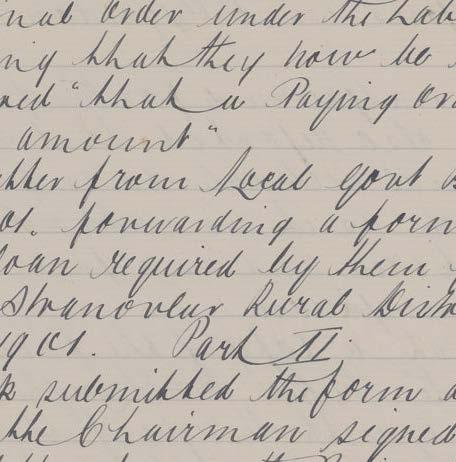 nal Order under the Lab
ng that they now be
red "that a Paying Or
amount"
tter from Local Govt B
01. forwarding a form
loan required by them
Stranorlar Rural Distr
1901. Part II.
k submitted the form a
the Chairman signed